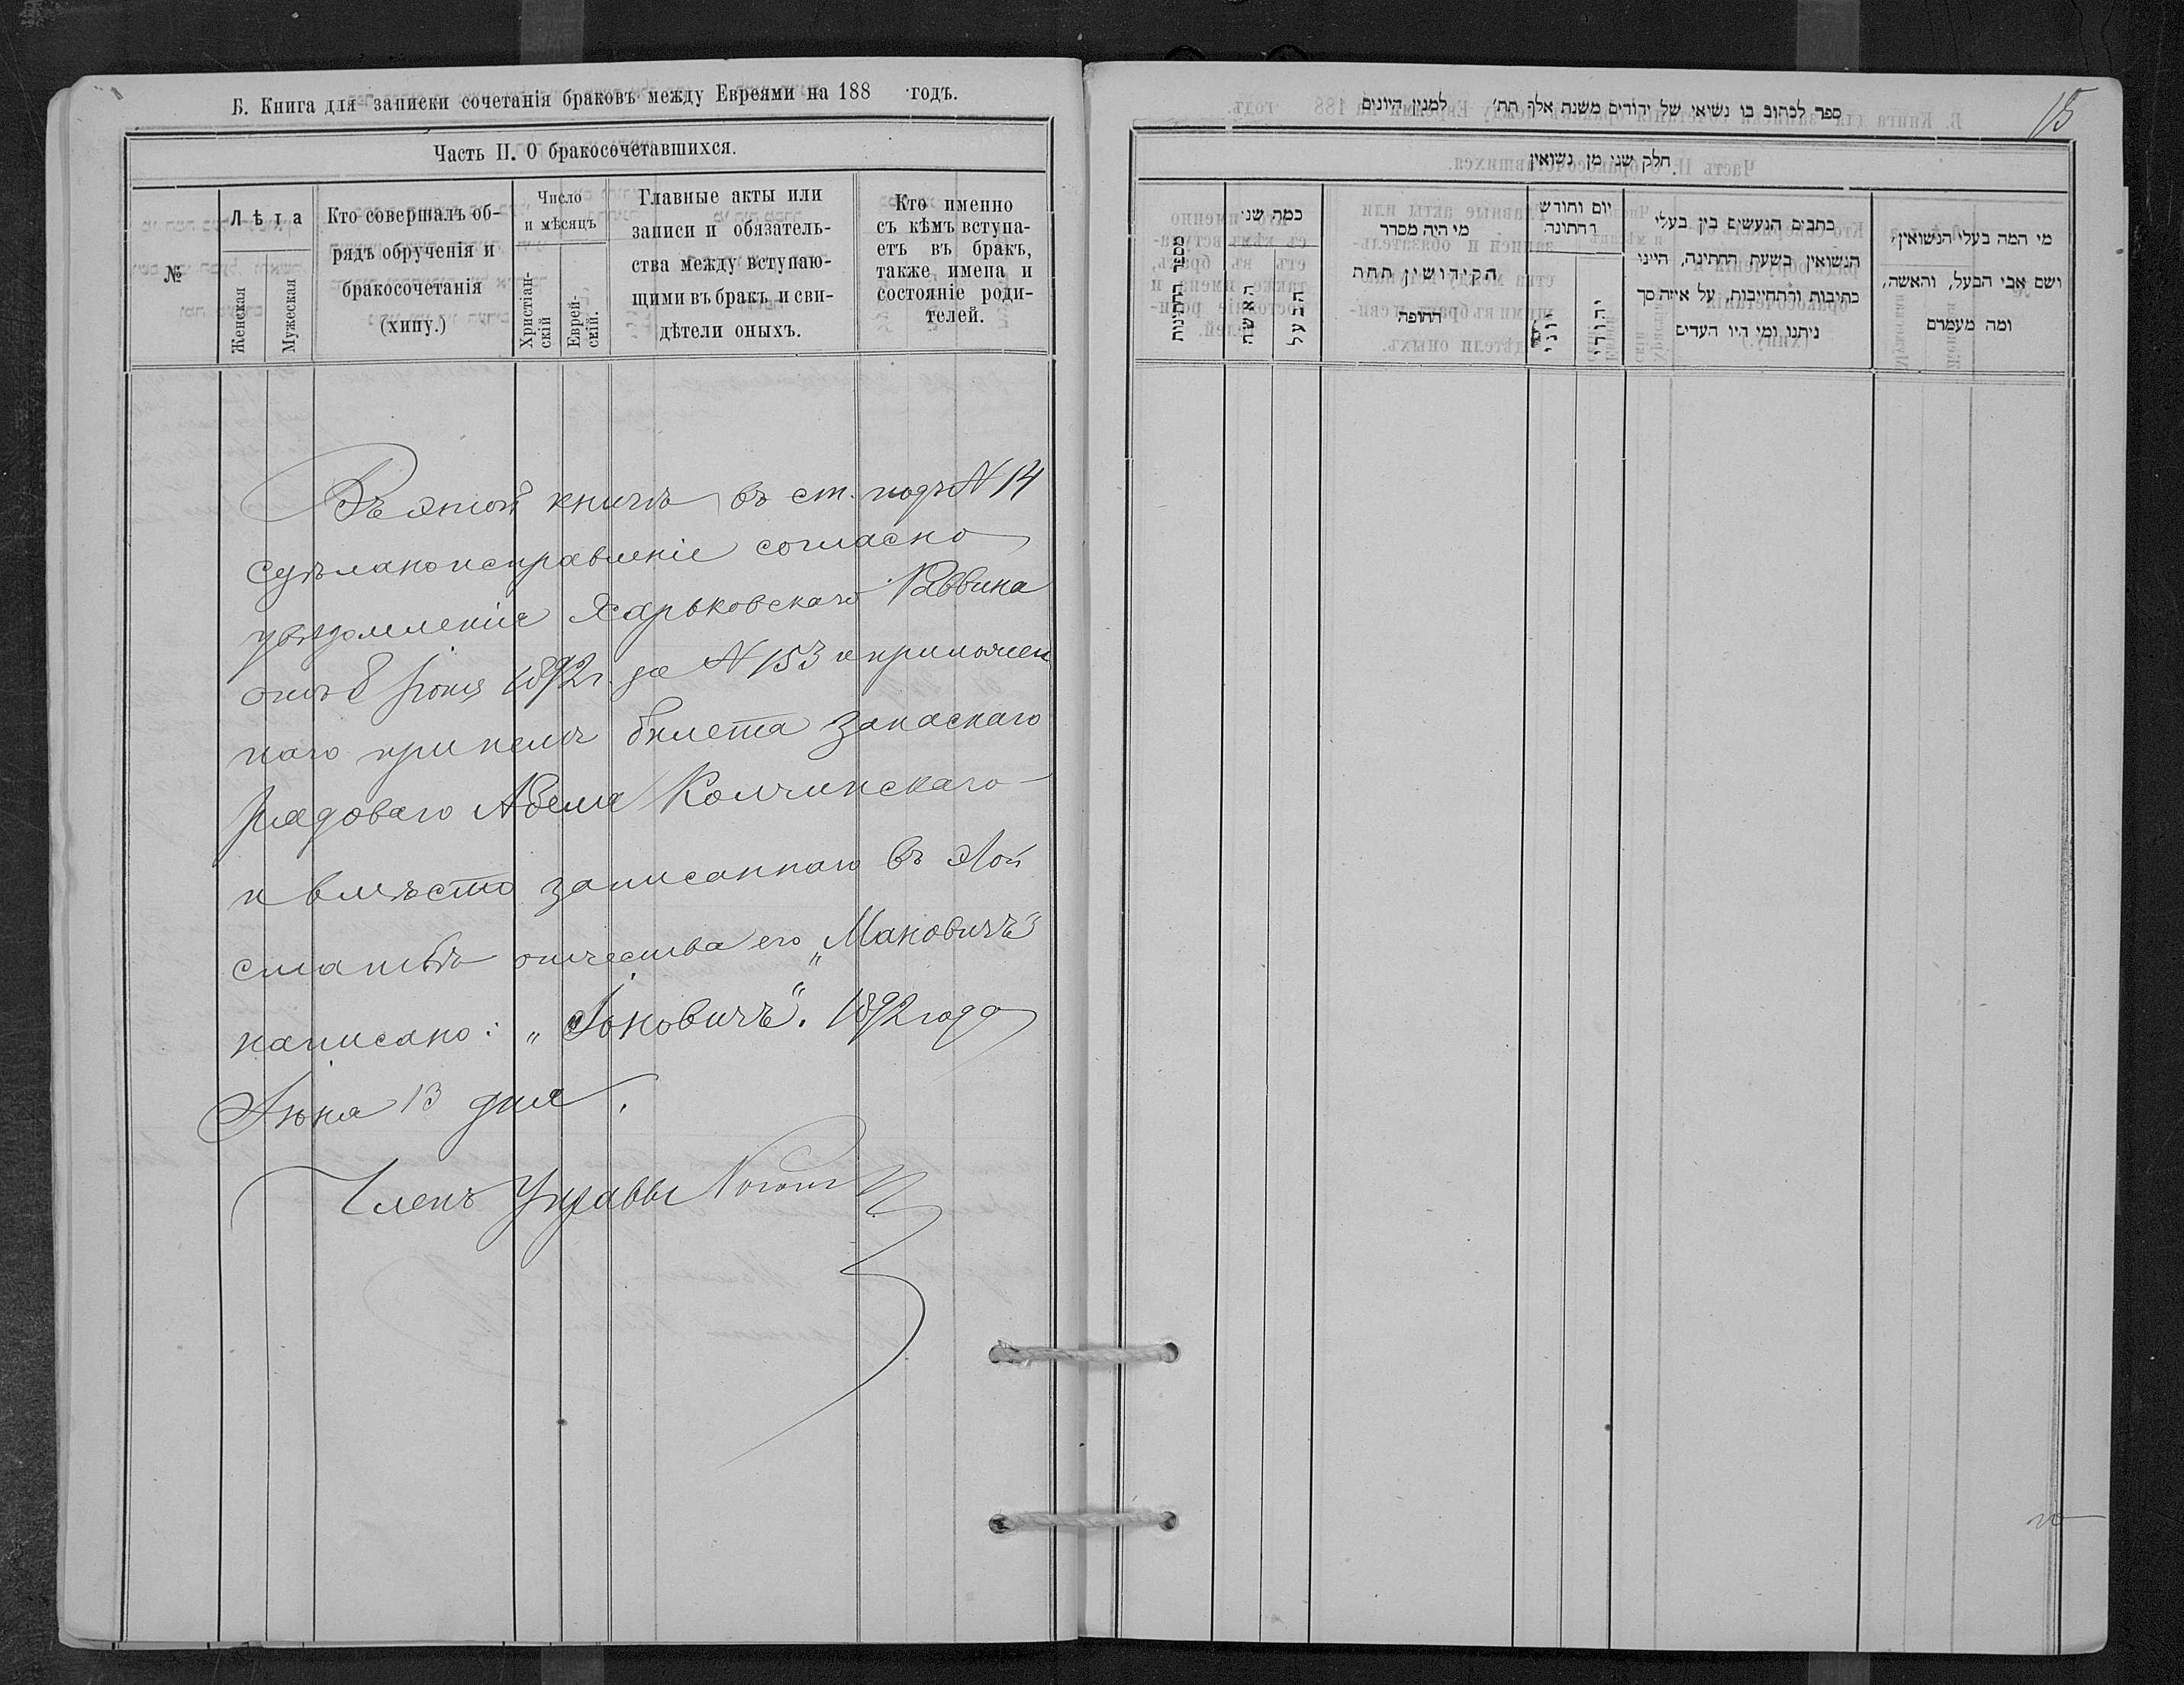 Б. Книга для записки сочетанія браковъ между Евреями на 188 годъ.
Часть II. О бракосочетавшихся.
№
Лѣта
Женская
Мужеская
Кто совершалъ об-
рядъ обрученія и
бракосочетанія
(хипу.)
Число
и мѣсяцъ
Христіан-
скій
Еврей-
скій.
Главные акты или
записи и обязатель-
ства между вступаю-
щими въ бракъ и сви-
дѣтели оныхъ.
Кто именно
съ кѣмъ вступа-
етъ въ бракъ,
также имена и
состояніе роди-
телей.
Въ этой книгѣ въ ст. подъ N 14
сдѣлано исправленіе согласно
увѣдомленія Харьковскаго Раввина
отъ 8 Іюня 1892 г. за N 153 и приложен
наго при немъ билета запаснаго
рядоваго Абеля Колчинскаго
и вмѣсто записаннаго въ этой
статьѣ отчества его „Мановичъ"
написано: „Іоновичъ". 1892 года
Іюня 13 дня.
Членъ Управы
15
ספר לכתוב בו נשואי של יהודים משנת אלף תת׳ למנין היונים
חלק שני מן נשואין
מספר החתונות
כמה שני׳
האשה
הבעל
מי היה מסדר
הקידושין תחת
החופה
יום וחודש
החתונה
יוני
יהודי
כתבים הנעשים בין בעלי
הנשואין בשעת החתינה, היינו
כתיבות והתחייבות, על איזה סך
ניתנו ומי היו העדים
מי המה בעלי הנשואין,
ושם אבי הבעל, והאשה,
ומה מעמדם